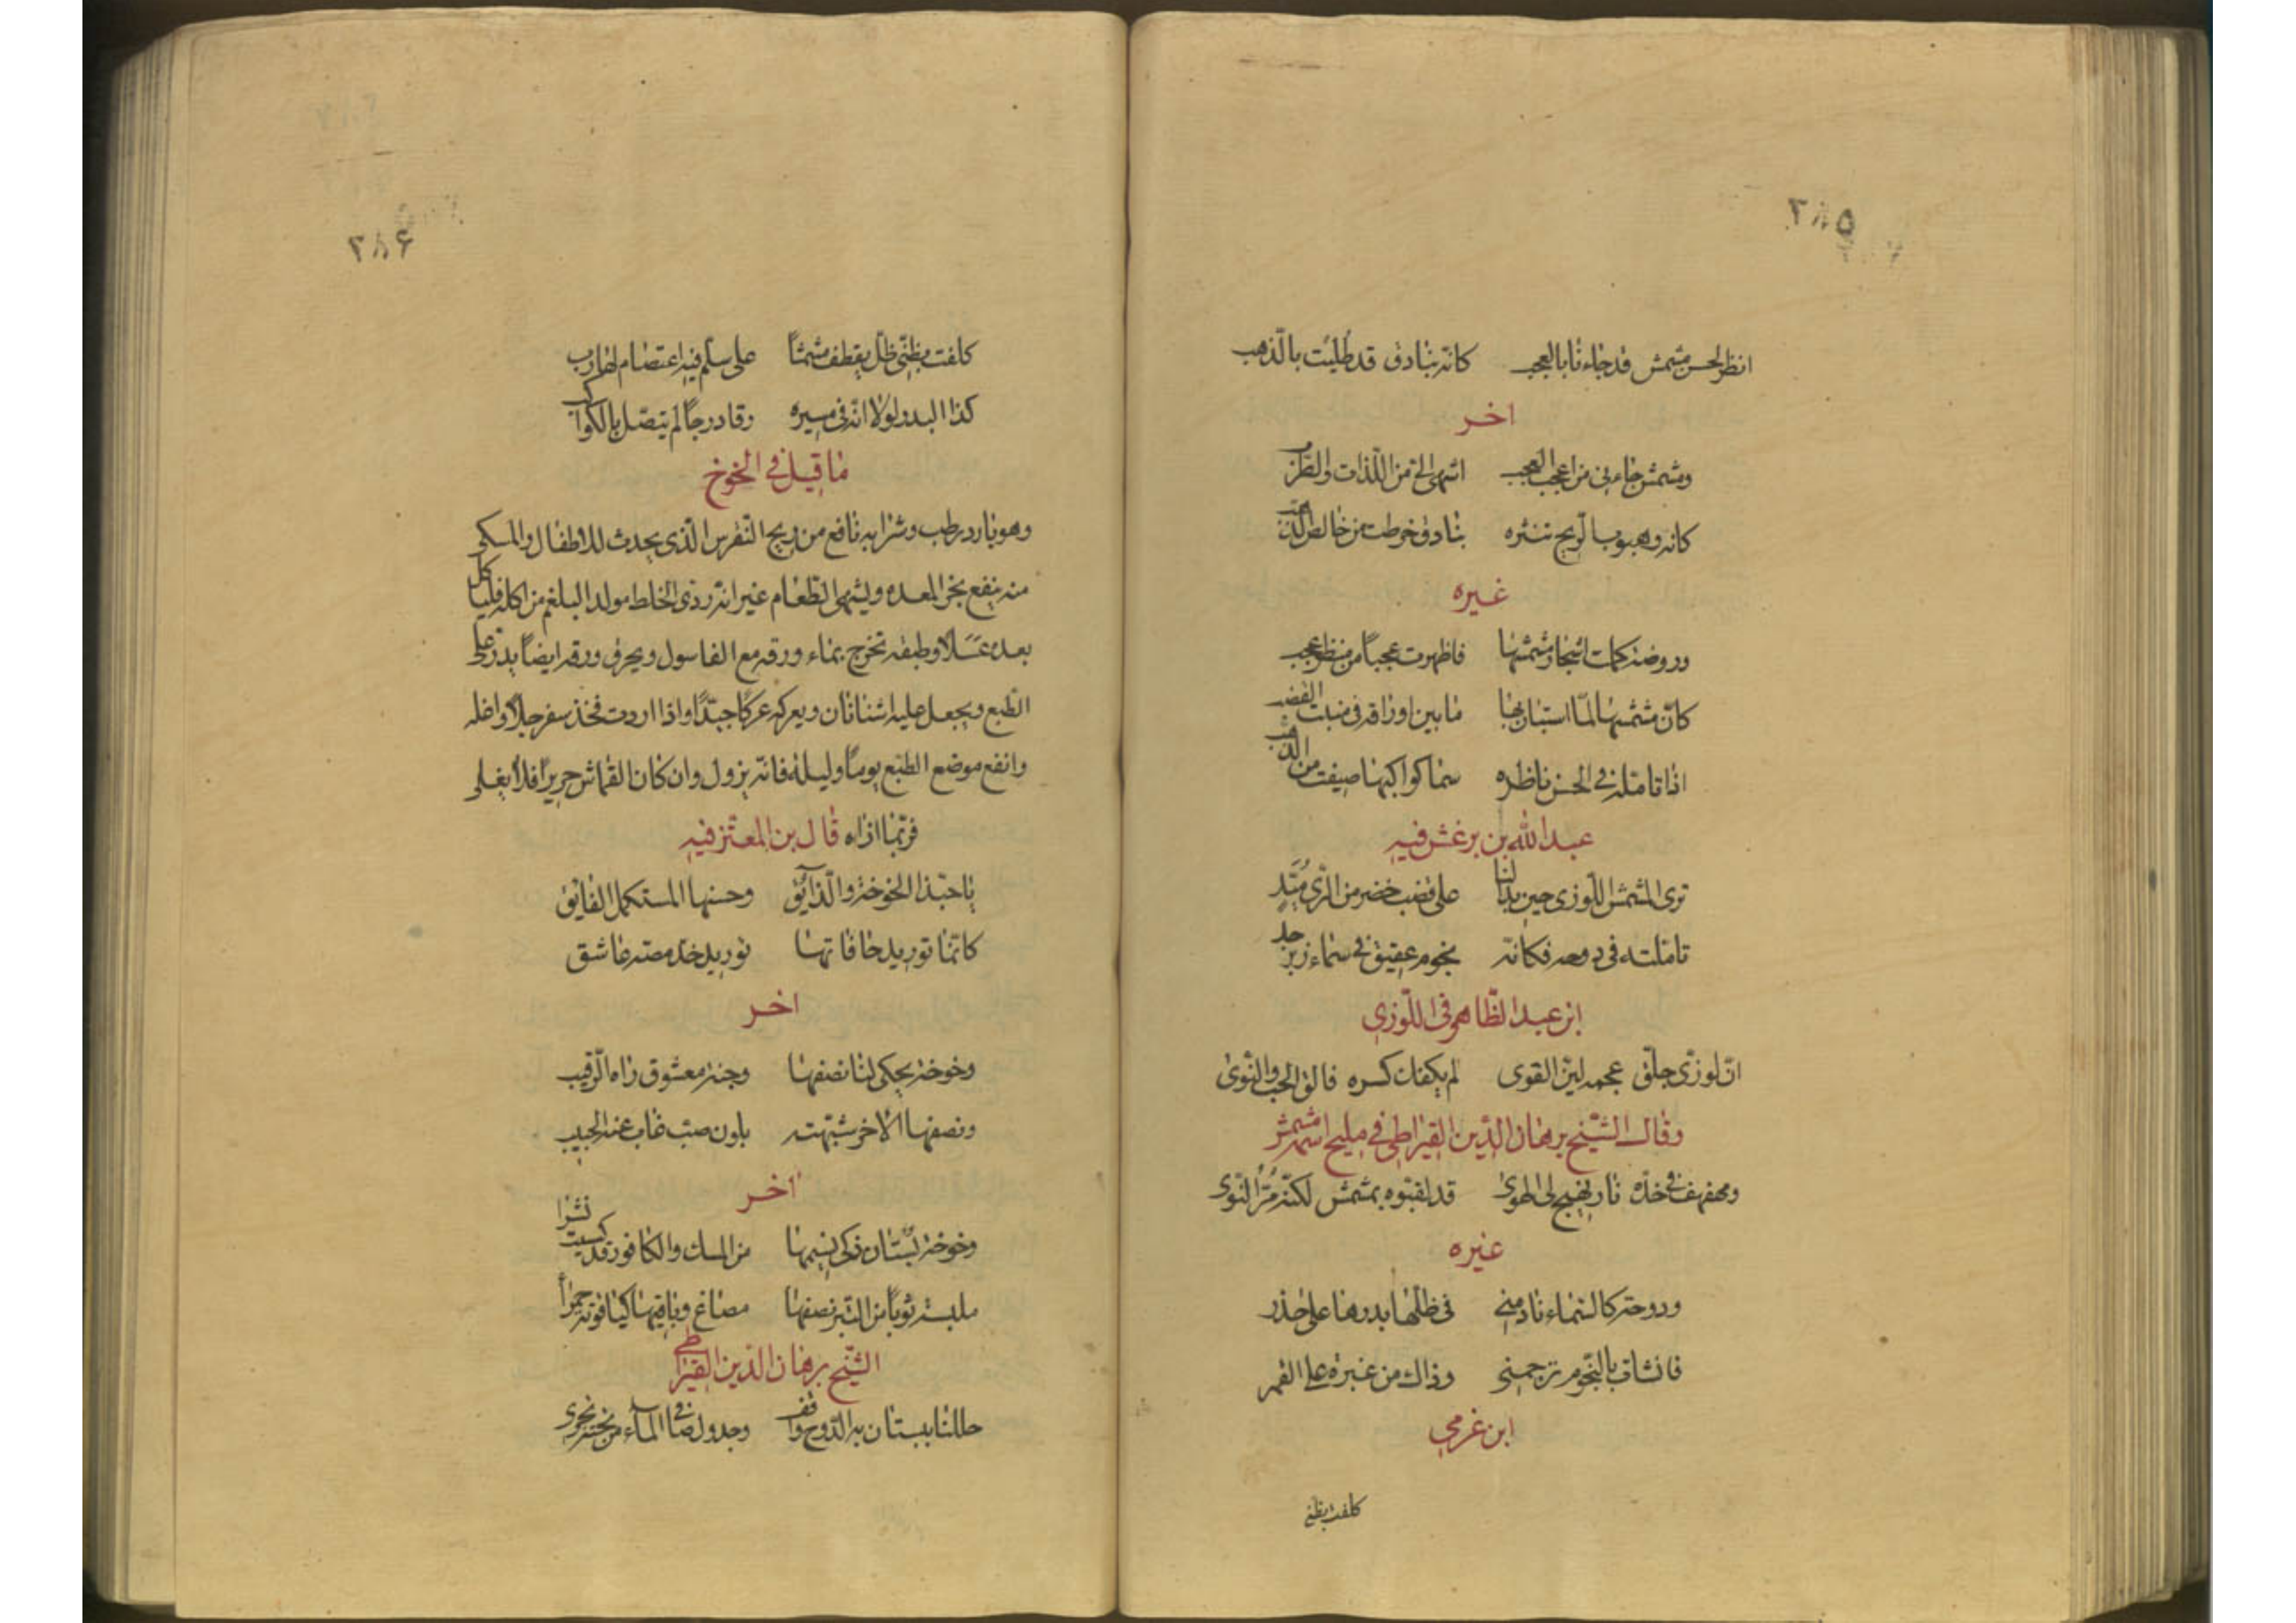 ٣٨٥
انظر لحسن مشمش قد جاءنا بالعجب كانه بنادق قد طليت بالذهب
اخر
ومشمش جاءنى من اعجب العجب اشهى الى من اللذات والطرب
كانه وهبوب الريح تنثره بنادق خرطت من خالص الذهب
غيره
وروضة كملت اشجار مشمشها فاظهرت عجباً من منظر عجب
كان مشمشها لما استبان بها ما بين اوراقه فى منبت القضب
اذا تامله فى الحسن ناظره سما كواكبها صيغت من الذهب
عبد الله بن برغش فيه
ترى المشمش اللوزى حين بدا لنا على قضب خضر من الرى ميّد
تاملته فى دوحه فكانه نجوم عقيق فى سماء زبرجد
ابن عبد الظاهر فى اللوزى
ان لوزى جلق عجمه لين القوى لم يكفك كسره فالق الحب والنوى
وقال الشيخ برهان الدين القيراطى فى مليح اسمه مشمش
ومهفهف فى خده نار تهيج لى الهوى قد لقبوه بمشمش لكنه مر النوى
غيره
ودوحة كالسماء نادمنى فى ظلها بدرها على حذر
فانثاب بالنجوم ترجمنى وذاك من غيرة على القمر
ابن غرمى
كلفت بظبى
٣٨۶
كلفت بظبى ظل يقطف مشمشاً على سلم فيه اعتصام لهارب
كذا البدر لولا انه فى مسيره رقا درجاً لم يتصل بالكواكب
ما قيل فى الخوخ
وهو بارد رطب وشرابه نافع من ريح النقرس الذى يحدث للاطفال والمسكى
منه ينفع بخر المعده ويشهى الطعام غير انه ردى الخلط مولد البلغم من اكله فلياكل
بعده عسلا وطبعه تخرج بماء ورقه مع الغاسول ويحرق ورقه ايضاً يذر على
الطبع ويجعل عليه اشنانان ويعركه عركا جيّدًا واذا اردت فخذ سفرجلاً واغله
وانقع موضع الطبع يوماً وليلة فانه يزول وان كان القماش حريرًا فلا يغلى
فربما اذاه قال بن المعتز فيه
يا حبذا الخوخة والذايق وحسنها المستكمل الفايق
كانما توريد حافاتها توريد خد مصه عاشق
اخر
وخوخة يحكى لنا نصفها وجنة معشوق راه الرقيب
ونصفها الاخر شبهته بلون صب غاب عنه الحبيب
اخر
وخوخة بستان ذكى نسيمها من المسك والكافور قد كسيت نشرا
ملبسة ثوباً من التبر نصفها مصاغ وباقيها كياقوتة حمرا
الشيخ برهان الدين القيراطى
حللنا ببستان به الدوح واقف وجدول صافى الماء من تحته يجرى